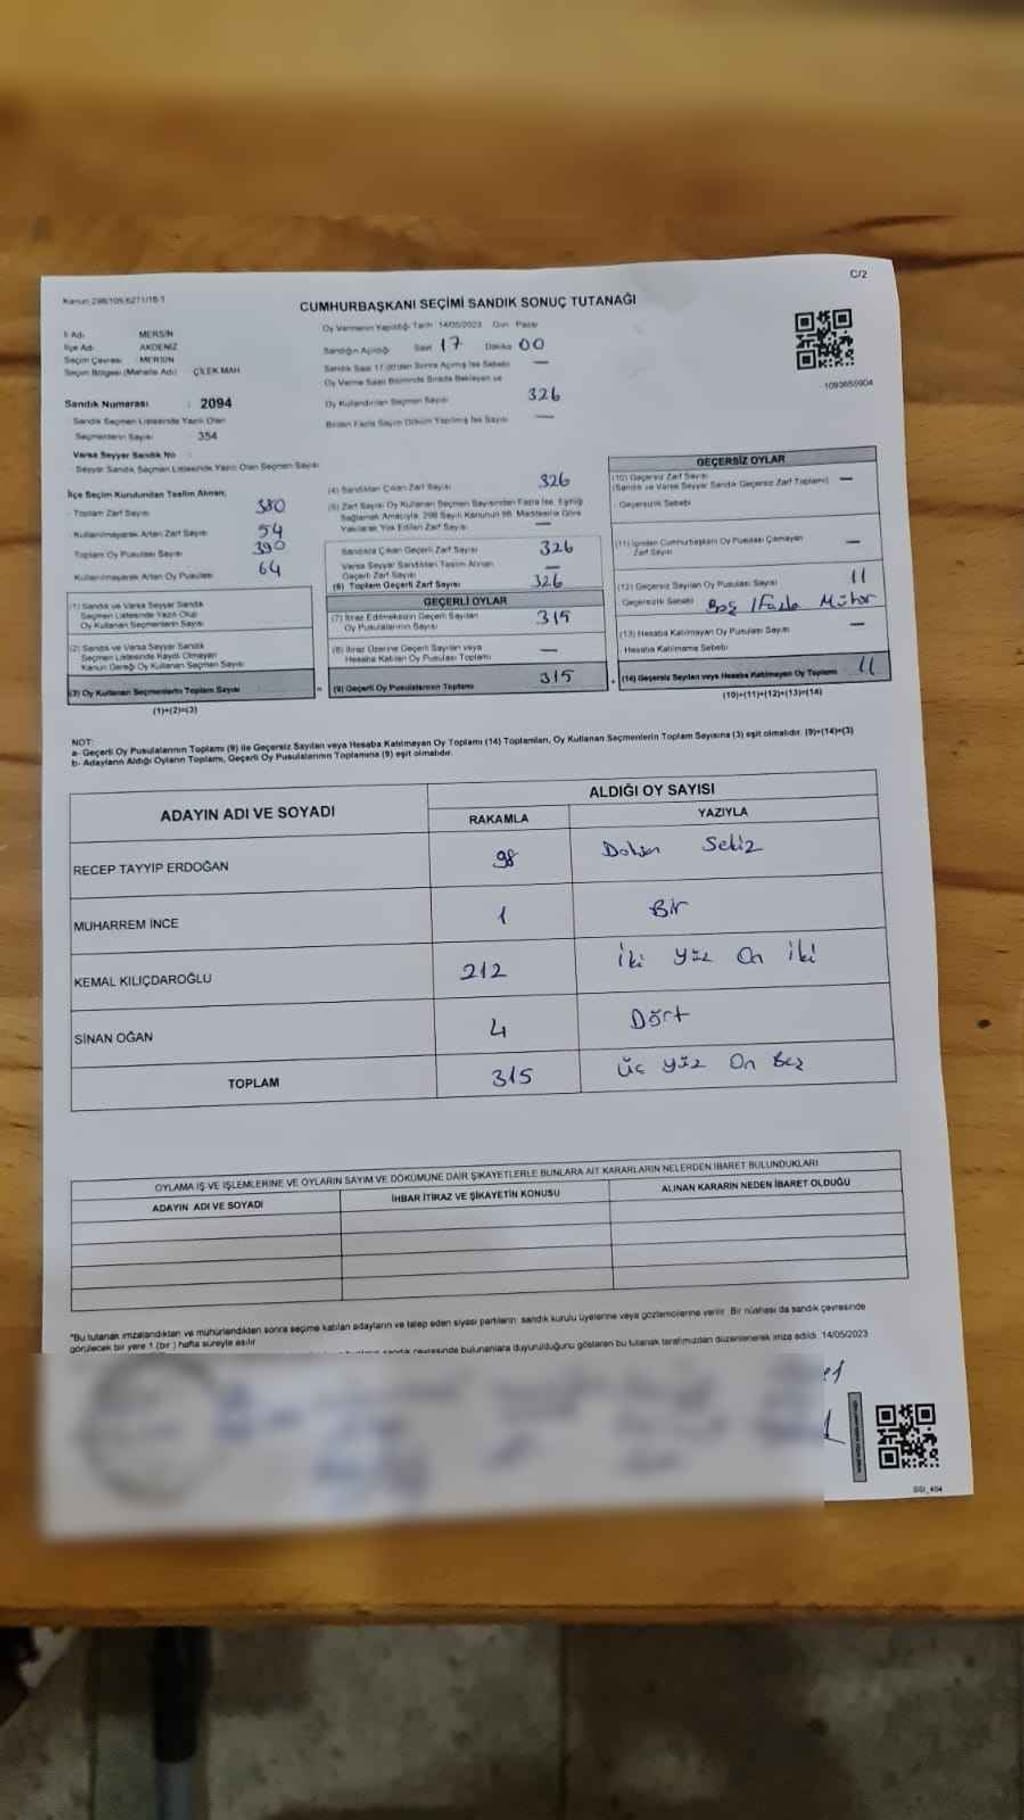 C/2
Kanun 298/105.6271/18-1
CUMHURBAŞKANI SEÇİMİ SANDIK SONUÇ TUTANAĞI
İl Adı MERSİN
İlçe Adı AKDENİZ
Seçim Çevresi MERSİN
Seçim Bölgesi (Mahalle Adı) ÇİLEK MAH
Sandık Numarası : 2094
Sandık Seçmen Listesinde Yazılı Olan
Seçmenlerin Sayısı 354
Varsa Seyyar Sandık No
Seyyar Sandık Seçmen Listesinde Yazılı Olan Seçmen Sayısı
Oy Vermenin Yapıldığı Tarih 14/05/2023 Gün Pazar
Sandığın Açıldığı Saat 17 Dakika 00
Sandık Saat 17.00'den Sonra Açılmış İse Sebebi —
Oy Verme Saati Bitiminde Sırada Bekleyen ve
Oy Kullandırılan Seçmen Sayısı 326
Birden Fazla Sayım Döküm Yapılmış İse Sayısı —
1093650904
İlçe Seçim Kurulundan Teslim Alınan;
Toplam Zarf Sayısı 380
Kullanılmayarak Artan Zarf Sayısı 54
Toplam Oy Pusulası Sayısı 390
Kullanılmayarak Artan Oy Pusulası 64
(1) Sandık ve Varsa Seyyar Sandık
Seçmen Listesinde Yazılı Olup
Oy Kullanan Seçmenlerin Sayısı
(2) Sandık ve Varsa Seyyar Sandık
Seçmen Listesinde Kayıtlı Olmayan
Kanun Gereği Oy Kullanan Seçmen Sayısı
(3) Oy Kullanan Seçmenlerin Toplam Sayısı
(1)+(2)=(3)
(4) Sandıktan Çıkan Zarf Sayısı 326
(5) Zarf Sayısı Oy Kullanan Seçmen Sayısından Fazla İse, Eşitliği
Sağlamak Amacıyla, 298 Sayılı Kanunun 98. Maddesine Göre
Yakılarak Yok Edilen Zarf Sayısı —
Sandıkta Çıkan Geçerli Zarf Sayısı 326
Varsa Seyyar Sandıktan Teslim Alınan
Geçerli Zarf Sayısı —
(6) Toplam Geçerli Zarf Sayısı 326
GEÇERLİ OYLAR
(7) İtiraz Edilmeksizin Geçerli Sayılan
Oy Pusulalarının Sayısı 315
(8) İtiraz Üzerine Geçerli Sayılan veya
Hesaba Katılan Oy Pusulası Toplamı —
= (9) Geçerli Oy Pusulalarının Toplamı 315
GEÇERSİZ OYLAR
(10) Geçersiz Zarf Sayısı
(Sandık ve Varsa Seyyar Sandık Geçersiz Zarf Toplamı) —
Geçersizlik Sebebi
(11) İçinden Cumhurbaşkanı Oy Pusulası Çıkmayan
Zarf Sayısı —
(12) Geçersiz Sayılan Oy Pusulası Sayısı 11
Geçersizlik Sebebi Boş / Fazla Mühür
(13) Hesaba Katılmayan Oy Pusulası Sayısı —
Hesaba Katılmama Sebebi
+ (14) Geçersiz Sayılan veya Hesaba Katılmayan Oy Toplamı 11
(10)+(11)+(12)+(13)=(14)
NOT:
a- Geçerli Oy Pusulalarının Toplamı (9) ile Geçersiz Sayılan veya Hesaba Katılmayan Oy Toplamı (14) Toplamları, Oy Kullanan Seçmenlerin Toplam Sayısına (3) eşit olmalıdır. (9)+(14)=(3)
b- Adayların Aldığı Oyların Toplamı, Geçerli Oy Pusulalarının Toplamına (9) eşit olmalıdır.
ADAYIN ADI VE SOYADI ALDIĞI OY SAYISI
RAKAMLA YAZIYLA
RECEP TAYYİP ERDOĞAN 98 Doksan Sekiz
MUHARREM İNCE 1 Bir
KEMAL KILIÇDAROĞLU 212 İki yüz On iki
SİNAN OĞAN 4 Dört
TOPLAM 315 üç yüz On beş
OYLAMA İŞ VE İŞLEMLERİNE VE OYLARIN SAYIM VE DÖKÜMÜNE DAİR ŞİKAYETLERLE BUNLARA AİT KARARLARIN NELERDEN İBARET BULUNDUKLARI
ADAYIN ADI VE SOYADI İHBAR İTİRAZ VE ŞİKAYETİN KONUSU ALINAN KARARIN NEDEN İBARET OLDUĞU
*Bu tutanak imzalandıktan ve mühürlendikten sonra seçime katılan adayların ve talep eden siyasi partilerin sandık kurulu üyelerine veya gözlemcilerine verilir. Bir nüshası da sandık çevresinde
görülecek bir yere 1 (bir ) hafta süreyle asılır
sandık çevresinde bulunanlara duyurulduğunu gösteren bu tutanak tarafımızdan düzenlenerek imza edildi. 14/05/2023